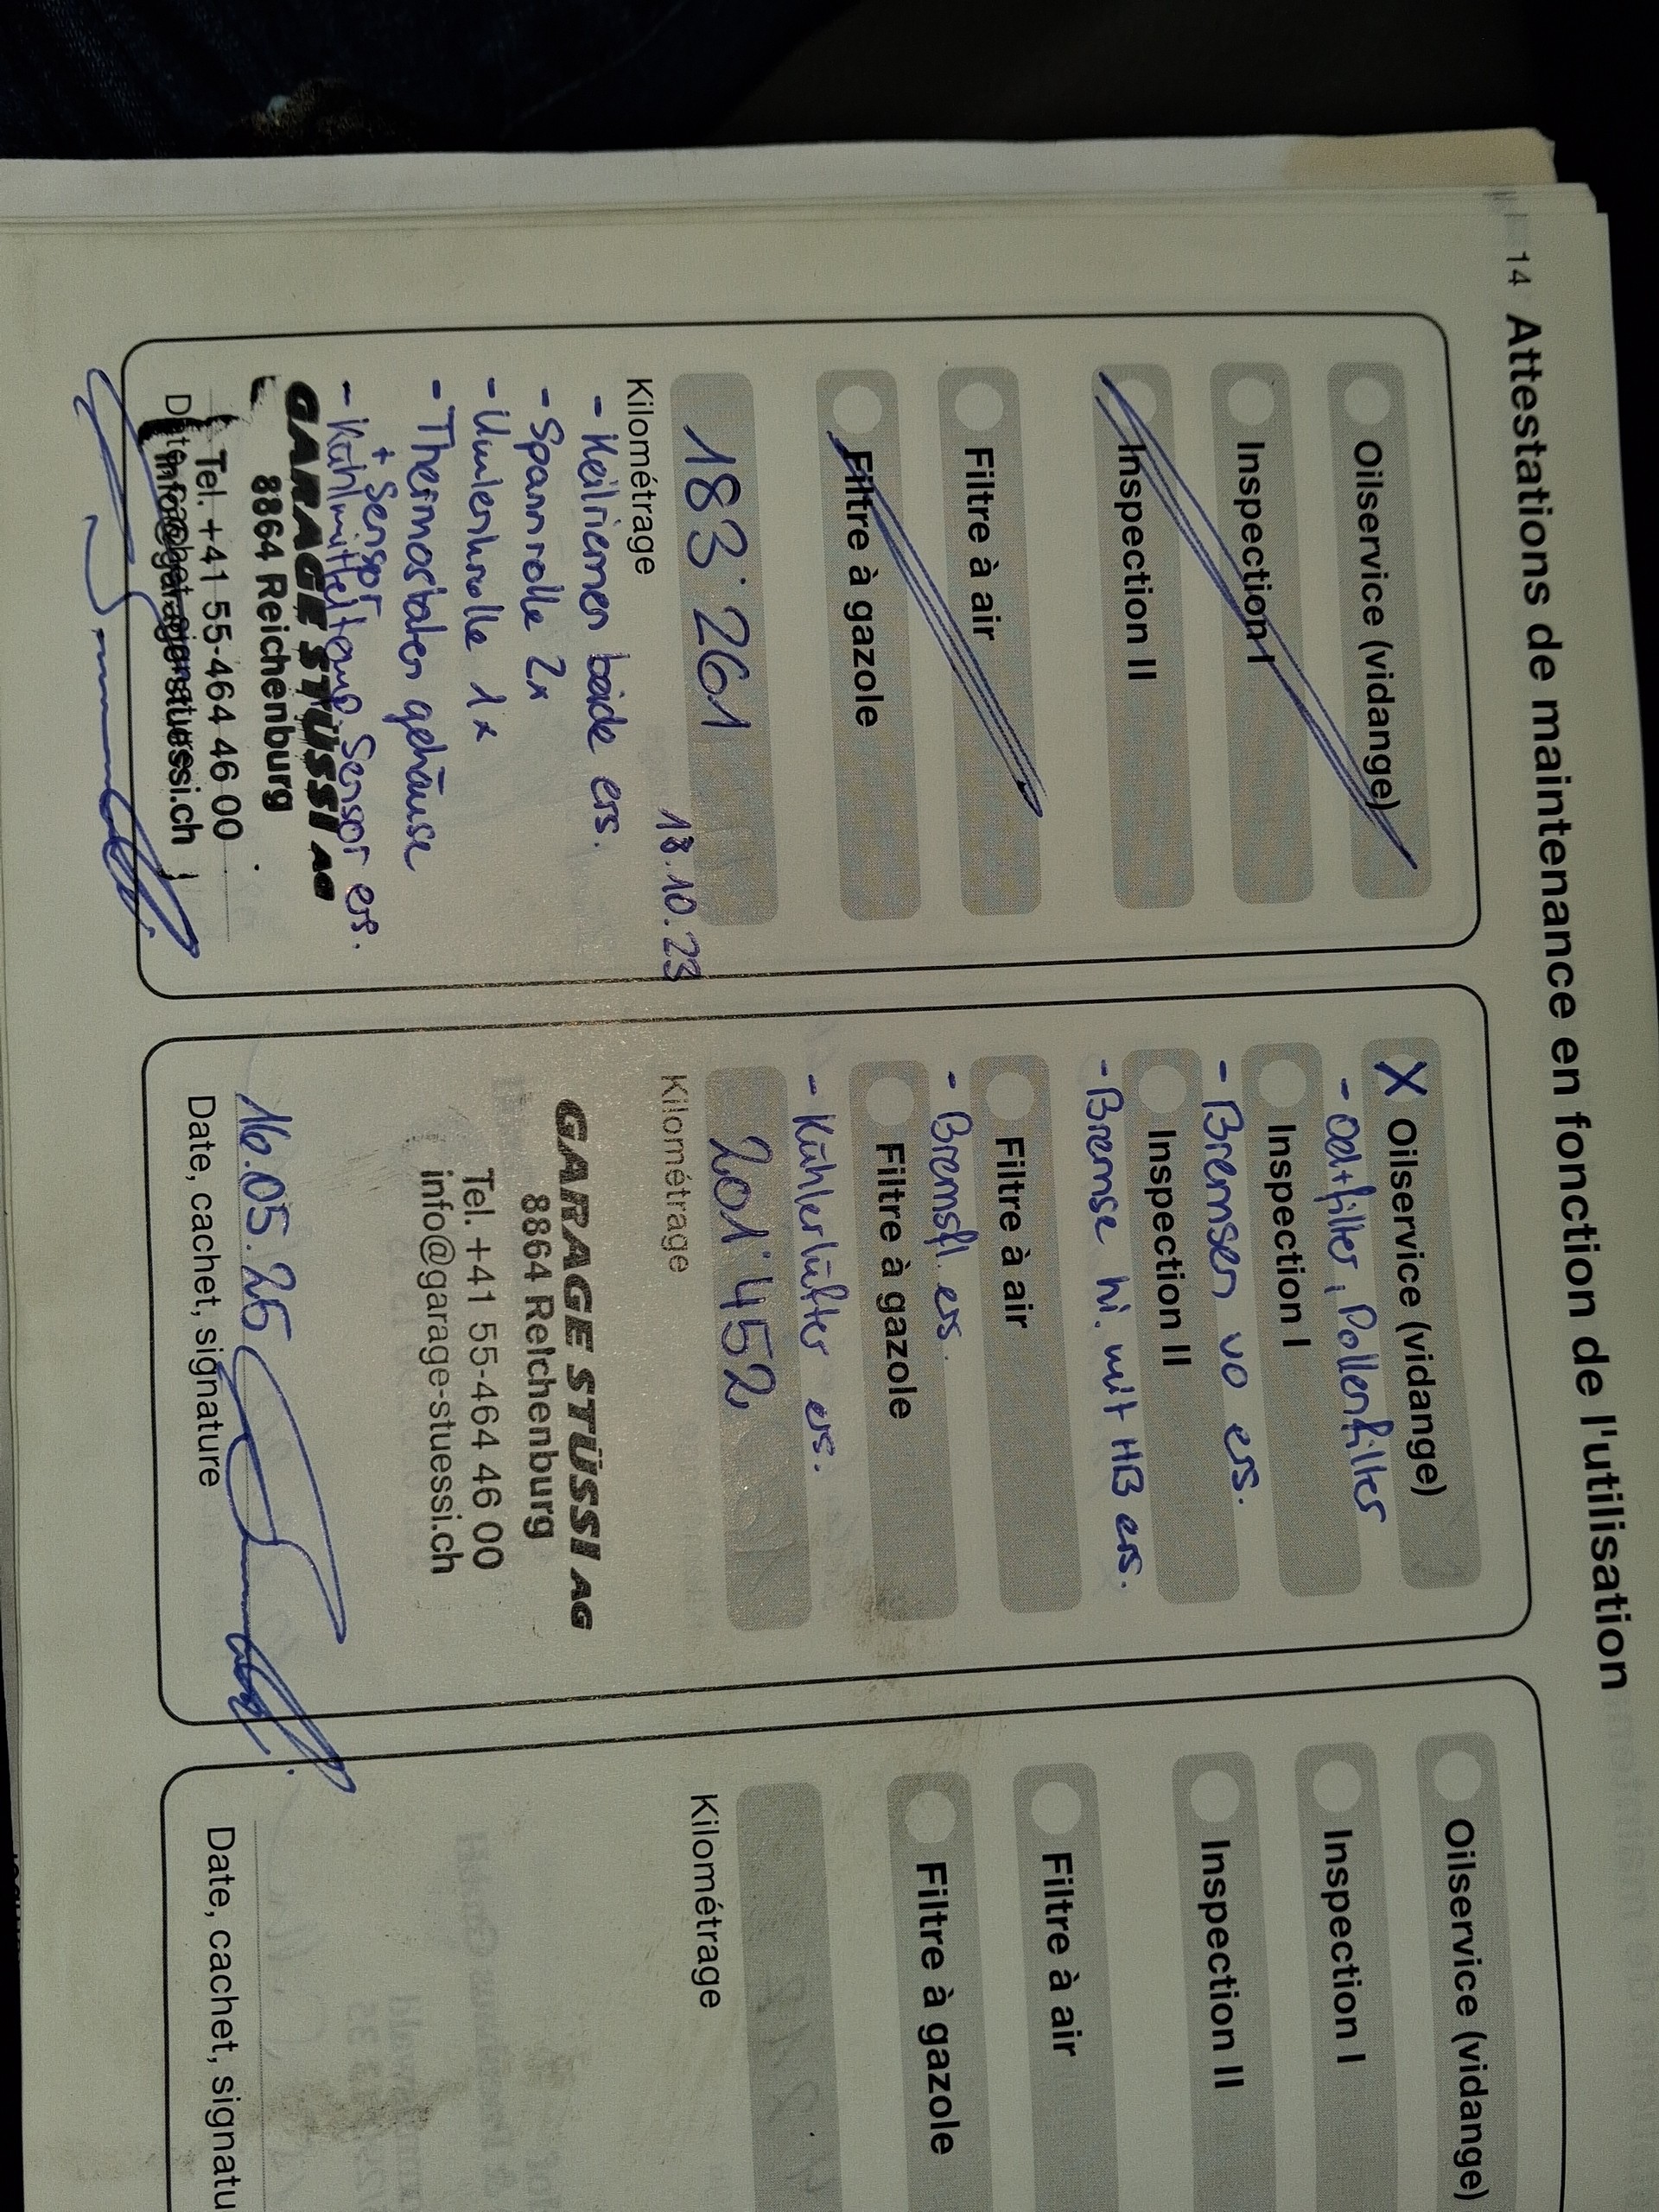 14 Attestations de maintenance en fonction de l'utilisation
Oilservice (vidange)
Inspection I
Inspection II
Filtre à air
Filtre à gazole
183'261
Kilométrage
18.10.23
- Keilriemen beide ers.
- Spannrolle 2x
- Umlenkrolle 1x
- Thermostaten gehäuse
+ Sensor
- Kühlmitteltemp Sensor ers.
GARAGE STÜSSI AG
8864 Reichenburg
Tel. +41 55-464 46 00
info@garage-stuessi.ch
X Oilservice (vidange)
- Oel+filter, Pollenfilter
Inspection I
- Bremsen vo ers.
Inspection II
- Bremse hi. mit HB ers.
Filtre à air
- Bremsfl. ers.
Filtre à gazole
- Kühlerlüfter ers.
201'452
Kilométrage
GARAGE STÜSSI AG
8864 Reichenburg
Tel. +41 55-464 46 00
info@garage-stuessi.ch
16.05.25
Date, cachet, signature
Oilservice (vidange)
Inspection I
Inspection II
Filtre à air
Filtre à gazole
Kilométrage
Date, cachet, signatu